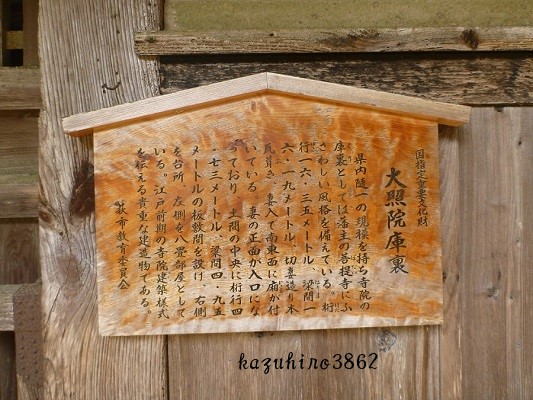 国指定重要文化財
大照院庫裏
県内随一の規模を持ち寺院の
庫裏としては藩主の菩提寺にふ
さわしい風格を備えている。桁
行一六・三五メートル、梁間一
六・一九メートル、切妻造り本
瓦葺き、妻入で南東面に庇が付
いている。妻の正面が入口にな
っており、土間の中央に桁行四
・七三メートル、梁間四・九五
メートルの板敷間を設け、右側
を台所、左側を八畳部屋として
いる。江戸前期の寺院建築様式
を伝える貴重な建造物である。
萩市教育委員会
kazuhiro3862